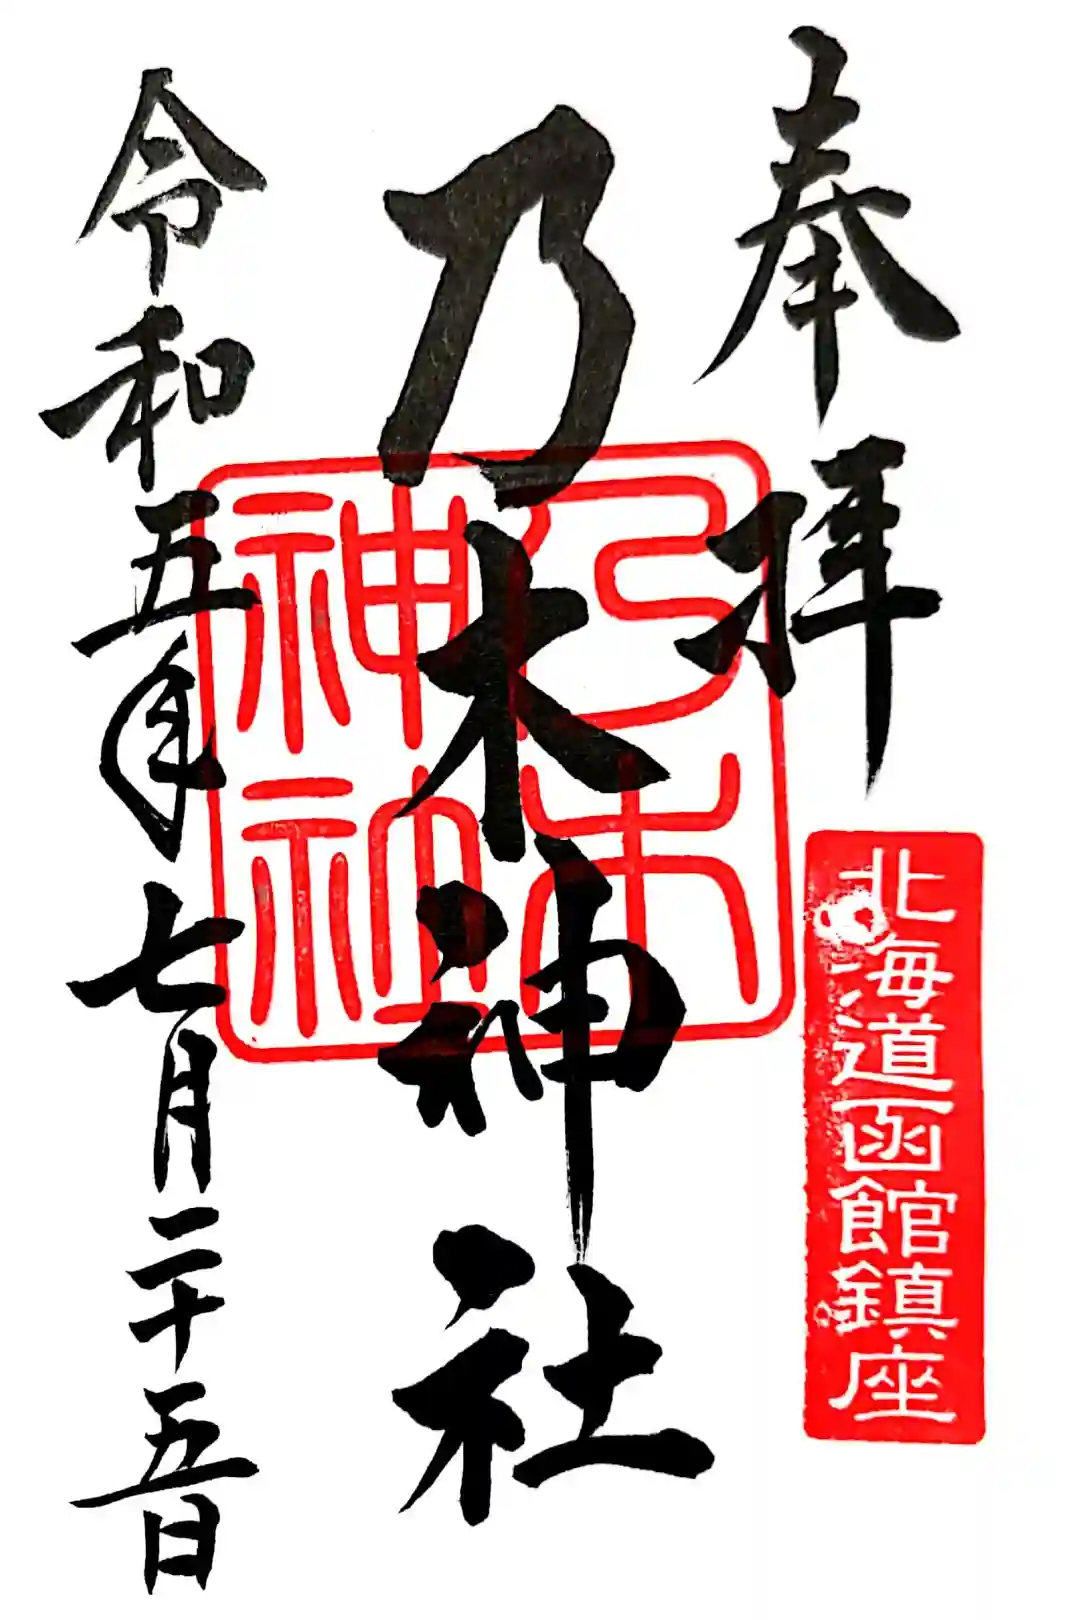 奉拝
北海道函館鎮座
乃木神社
乃木神社
令和五年七月二十五日